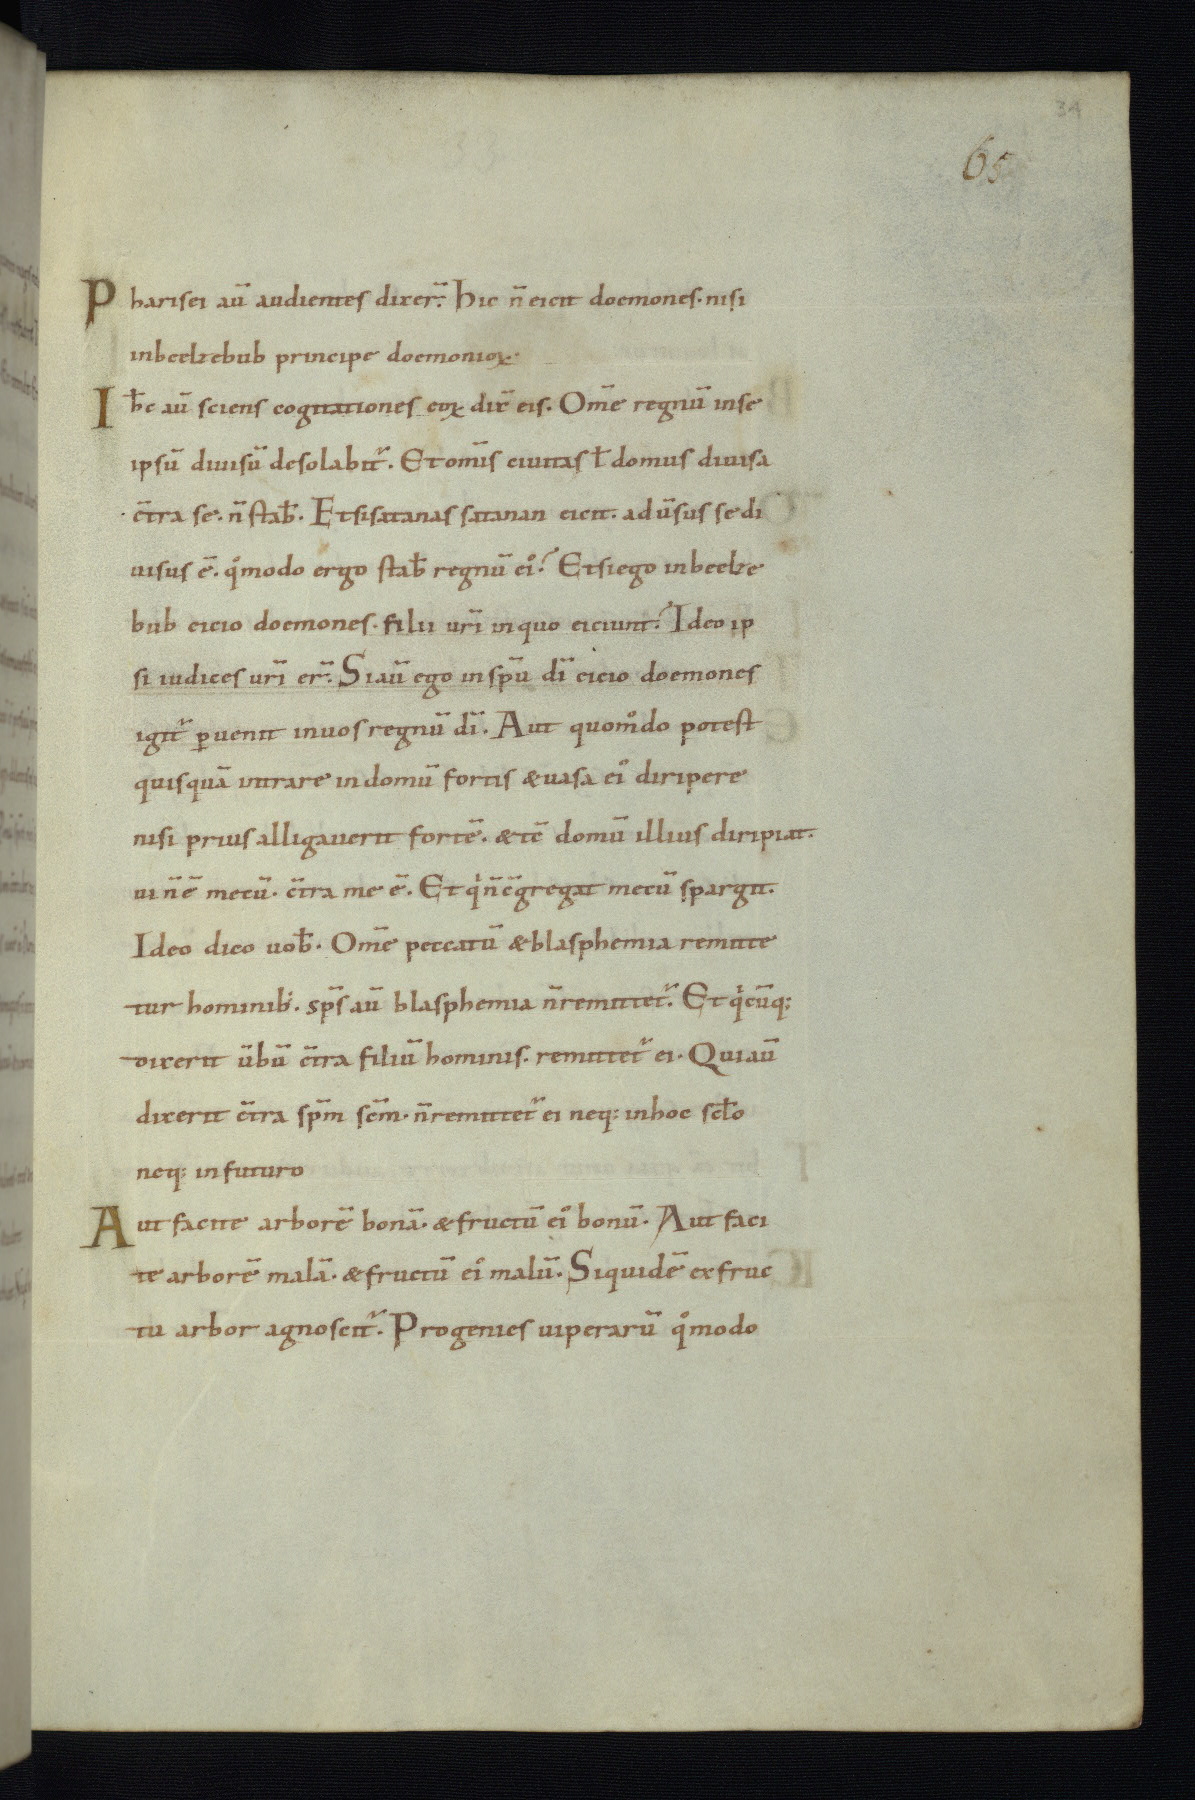 34
65
Pharisei aū audientes dixer̄. Hic n̄ eicit doemones. nisi
inbeelzebub principe doemonioꝝ.
Ih̄c aū sciens cogitationes eoꝝ dix̄ eis. Om̄e regnū inse
ipsū diuisū desolabit᷑. Et om̄is ciuitas ł domus diuisa
c̄tra se. n̄ stab̄. Etsisatanas satanan eicit. adūsus se di
uisus ē. qͦmodo ergo stab̄ regnū eiꝰ? Etsiego inbeelze
bub eicio doemones. filii ur̄i inquo eiciunt? Ideo ip
si iudices ur̄i er̄. Siaū ego insp̄u dī eicio doemones
igit᷑ ꝑuenit inuos regnū dī. Aut quomͦdo potest
quisquā intrare indomū fortis &uasa eiꝰ diripere
nisi prius alligauerit fortē. &tc̄ domū illius diripiat.
ui n̄ ē mecū. c̄tra me ē. Et qͥ n̄ c̄gregat mecū spargit.
Ideo dico uob̄. Om̄e peccatū &blasphemia remitte
tur hominibꝰ. sp̄s aū blasphemia n̄ remittet᷑. Et qͥcūq;
dixerit ūbū c̄tra filiū hominis. remittet᷑ ei. Quiaū
dixerit c̄tra sp̄m sc̄m. n̄ remittet᷑ ei neq; inhoc scło
neq; infuturo
Aut facite arborē bonā. &fructū eiꝰ bonū. Aut faci
te arborē malā. &fructū eiꝰ malū. Siquidē exfruc
tu arbor agnoscit᷑. Progenies uiperarū qͦmodo